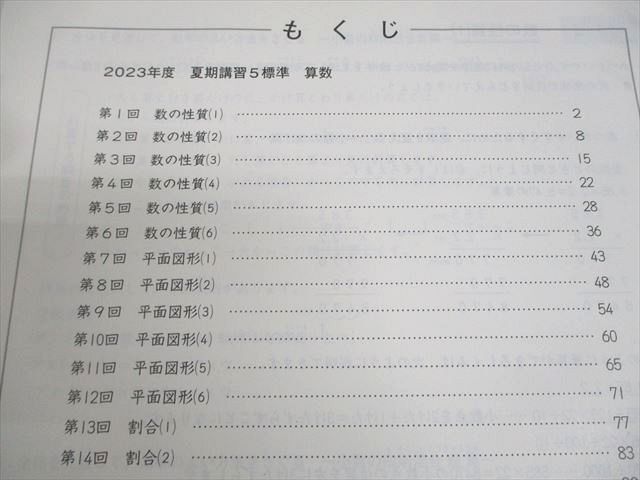 もくじ
2023年度 夏期講習5標準 算数
第1回 数の性質(1) 2
第2回 数の性質(2) 8
第3回 数の性質(3) 15
第4回 数の性質(4) 22
第5回 数の性質(5) 28
第6回 数の性質(6) 36
第7回 平面図形(1) 43
第8回 平面図形(2) 48
第9回 平面図形(3) 54
第10回 平面図形(4) 60
第11回 平面図形(5) 65
第12回 平面図形(6) 71
第13回 割合(1) 77
第14回 割合(2) 83